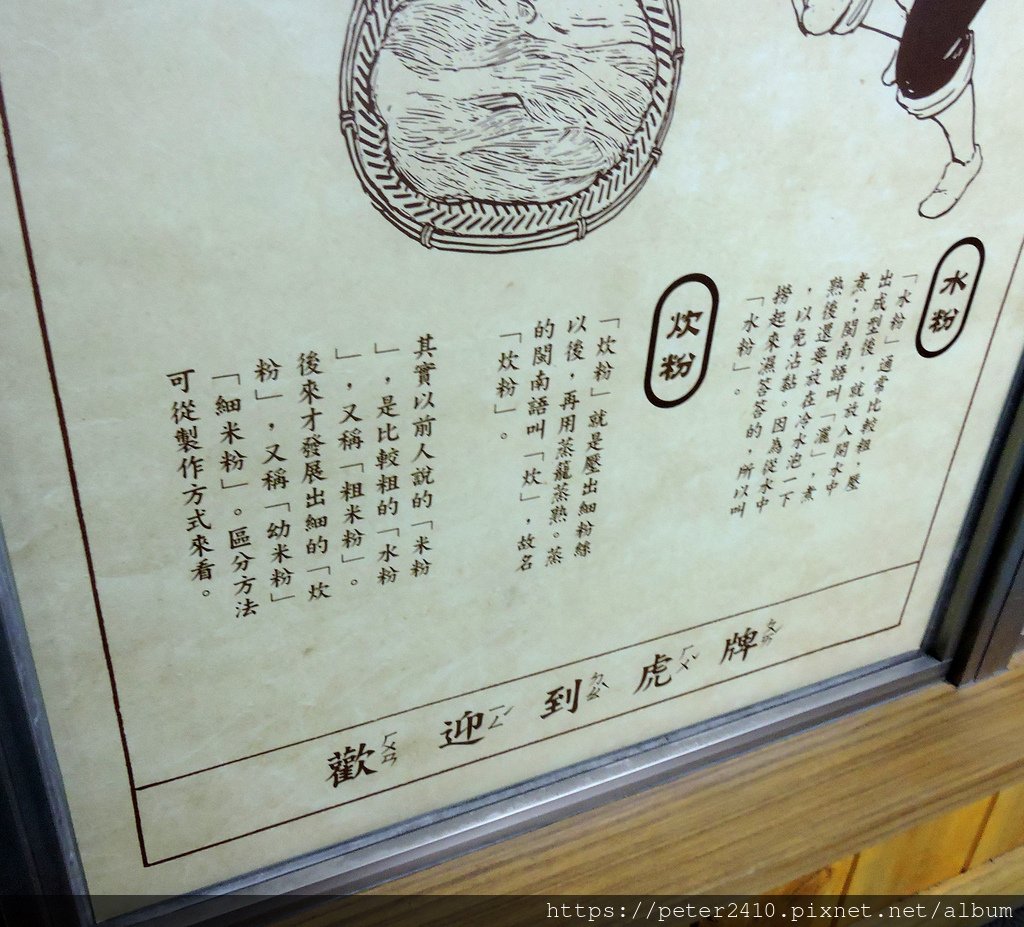 水粉
「水粉」通常比較粗，壓
出成型後，就放入開水中
煮；閩南語叫「灑」，煮
熟後還要放在冷水泡一下
，以免沾黏。因為從水中
撈起來濕答答的，所以叫
「水粉」。
炊粉
「炊粉」就是壓出細粉絲
以後，再用蒸籠蒸熟。蒸
的閩南語叫「炊」，故名
「炊粉」。
其實以前人說的「米粉
」，是比較粗的「水粉
」，又稱「粗米粉」。
後來才發展出細的「炊
粉」，又稱「幼米粉」
「細米粉」。區分方法
可從製作方式來看。
歡ㄏㄨㄢ迎ㄧㄥˊ到ㄉㄠˋ虎ㄏㄨˇ牌ㄆㄞˊ
https://peter2410.pixnet.net/album